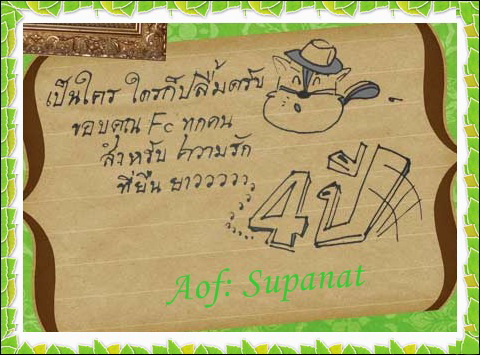 เป็นใคร ใครก็ปลื้มครับ
ขอบคุณ Fc ทุกคน
สำหรับ ความรัก
ที่ยืน ยาววววว
4ปี
Aof: Supanat